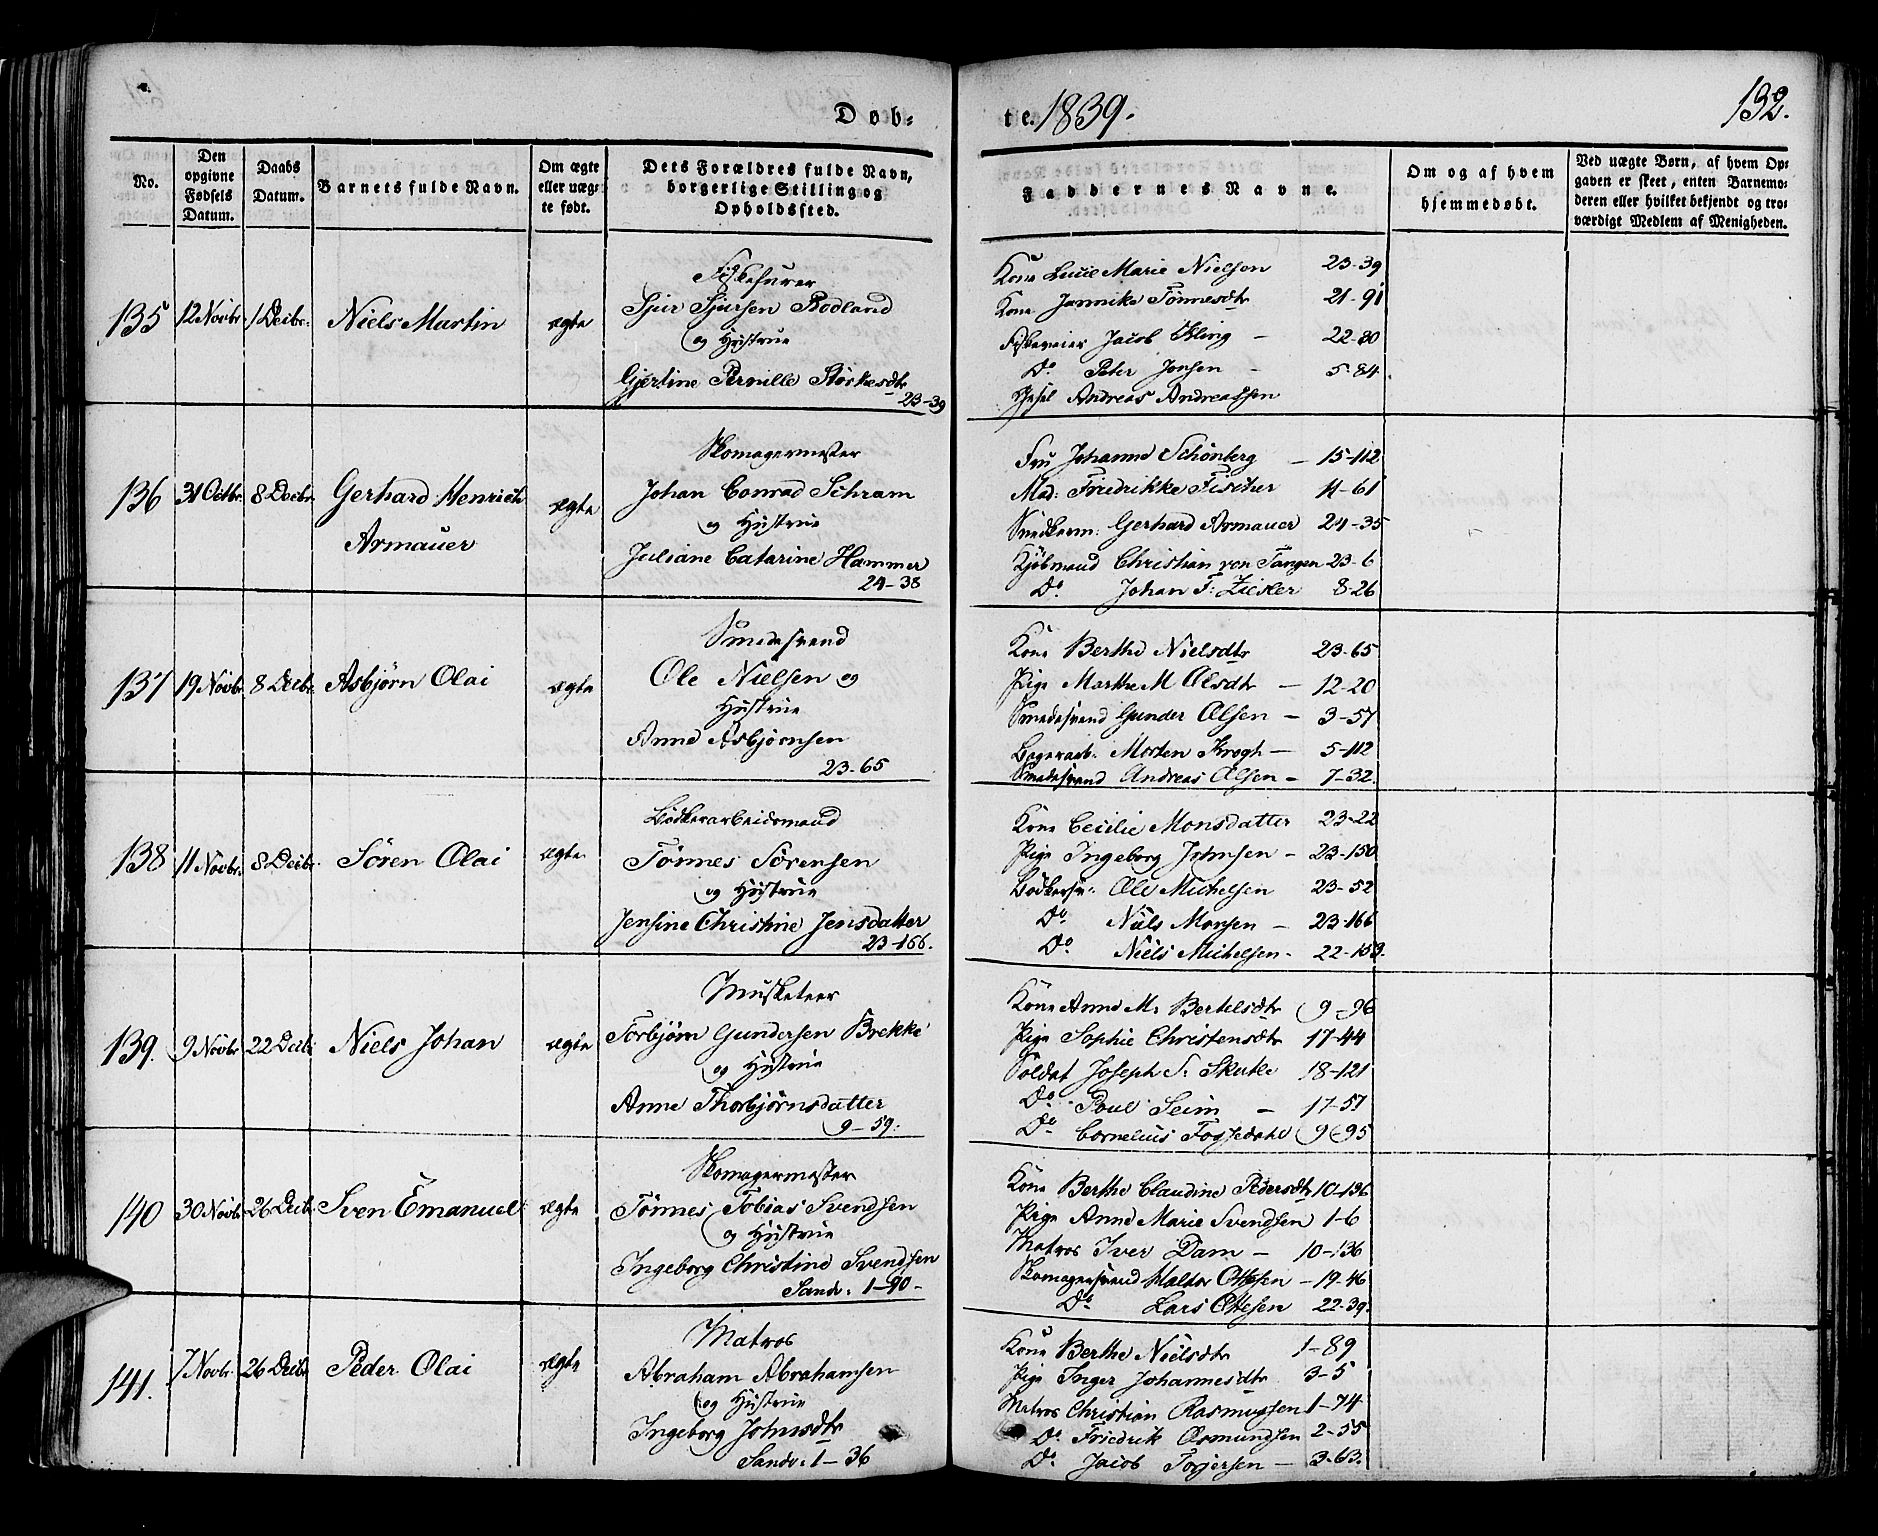 Døb-
te. 1839.
132.
No.
Den opgivne Fødsels Datum.
Daabs Datum.
Barnets fulde Navn.
Om ægte eller uæg- te født.
Dets Forældres fulde Navn, borgerlige Stilling og Opholdssted.
Faddernes Navne.
Om og af hvem hjemmedøbt.
Ved uægte Børn, af hvem Op- gaven er skeet, enten Barnemo- deren eller hvilket bekjendt og tro- værdigt Medlem af Menigheden.
135 12 Novbr. 1 Decbr. Niels Martin ægte
Sjur Sjursen Rodland
og Hustrue
Gjertine Pernille
23-39
Kone Lucie Marie Nielsen 23-39
Kone Jannike Tønnesdtr 21-91
Jacob 22-80
Do. Peter Jonsen - 5-84
Andreas Andreassen
136 31 Octbr. 8 Decbr. Gerhard Henrich
Armauer
ægte
Skomagermester
Johan Conrad Schram
og Hustrue
Juliane Catarine Hammer
24-38
Fru Johanne Schönberg - 15-112
Mad: Fridrikke Fischer 11-61
Snedkerm: Gerhard Armauer 24-35
Kjøbmand Christian von Tangen 23-6
Do. Johan F: Ziesler 8-26
137 19 Novbr. 8 Decbr. Asbjørn Olai ægte
Smedesvend
Ole Nielsen og
Hustrue
Anne Asbjørnsen
23-65
Kone Berthe Nielsdtr 23-65
Pige Marthe M Olsdtr - 12-20
Smedesvend Gunder Olsen - 3-57
Morten Krogh - 5-112
Smedesvend Andreas Olsen - 7-32.
138 11 Novbr. 8 Decbr. Søren Olai ægte
Bødkerarbeidsmand
Tønnes Sørensen
og Hustrue
Jensine Christine Jensdatter
23-166.
Kone Cecilie Monsdatter 23-22
Pige Ingeborg Johnsen - 23-150
Bødkersv: Ole Michelsen 23-52
Do. Niels Monsen - 23-166
Do. Niels Michelsen - 22-153.
139. 9 Novbr 22 Decbr Niels Johan ægte
Musketeer
Torbjørn Gundersen Brekke
og Hustrue
Anne Thorbjørnsdatter
9-59.
Kone Anne M: Bertelsdtr 9-96
Pige Sophie Christensdtr 17-44
Soldat Joseph S. Skutle 18-121
Do. Poul Seim - 17-57
Do. Cornelius Fossedahl 9-95
140 30 Novbr. 26 Decbr. Sven Emanuel ægte
Skomagermester
Tønnes Tobias Svendsen
og Hustrue
Ingeborg Christine Svendsen
Sandv: 1-90-
Kone Berthe Claudine Pedersdtr 10-136
Pige Anne Marie Svendsen 1-6
Matros Iver Dam - 10-136
Skomagersvend Haldor Ottesen - 19-46
Do. Lars Ottesen 22-39.
141. 7 Novbr. 26 Decbr. Peder Olai ægte
Matros
Abraham Abrahamsen
og Hustrue
Ingeborg Johnsdtr
Sandv: 1-36
Kone Berthe Nielsdtr 1-89
Pige Inger Johannesdtr 3-5
Matros Christian Rasmussen 1-74
Do. Friedrik Osmundsen 2-55
Do. Jacob Torjersen - 3-63.